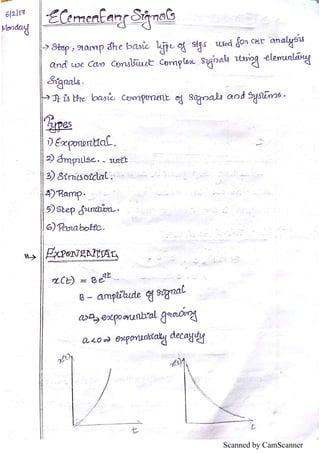 6/2/18
Monday
Elementary Signals
→ Step, ramp the basic type of sigs used for ckt analysis
and we can construct complex signals using elementary
signals.
→ It is the basic component of signals and systems.
Types
1) Exponential.
2) Impulse. - unit
3) Sinusoidal.
4) Ramp.
5) Step function.
6) Parabolic.
EXPONENTIAL
x(t) = Be^at
B - amplitude of signal
a>0 → exponential growing
a<0 ⇒ exponentialy decaying
x(t)
x(t)
t
t
Scanned by CamScanner